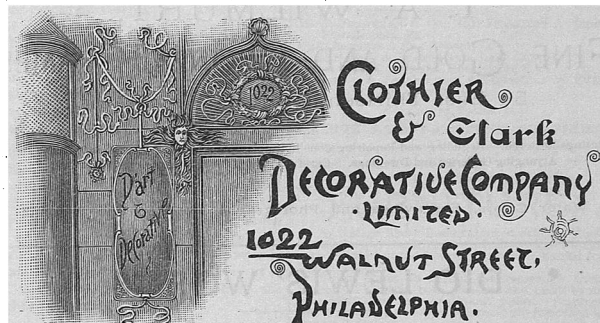 1022
D'art
&
Decorative
Clothier
& Clark
Decorative Company
Limited.
1022
Walnut Street,
Philadelphia.